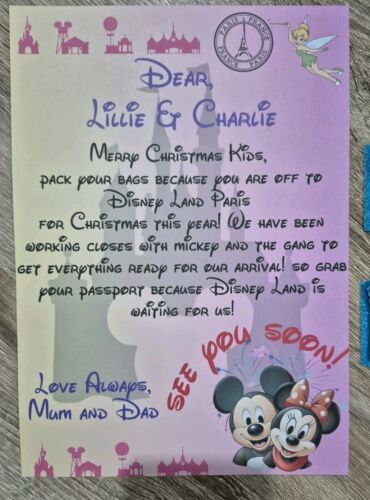 PARIS FRANCE
FRANCE PARIS
Dear,
Lillie & Charlie
Merry Christmas Kids,
pack your bags because you are off to
Disney Land Paris
for Christmas this year! We have been
working closes with mickey and the gang to
get everything ready for our arrival! so grab
your passport because Disney Land is
waiting for us!
SEE YOU SOON!
Love Always,
Mum and Dad